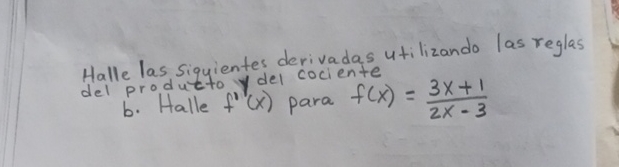 Halle las siguientes derivadas utilizando las reglas
del producto y del cociente
b. Halle f'(x) para f(x) = 3x+1 / 2x-3